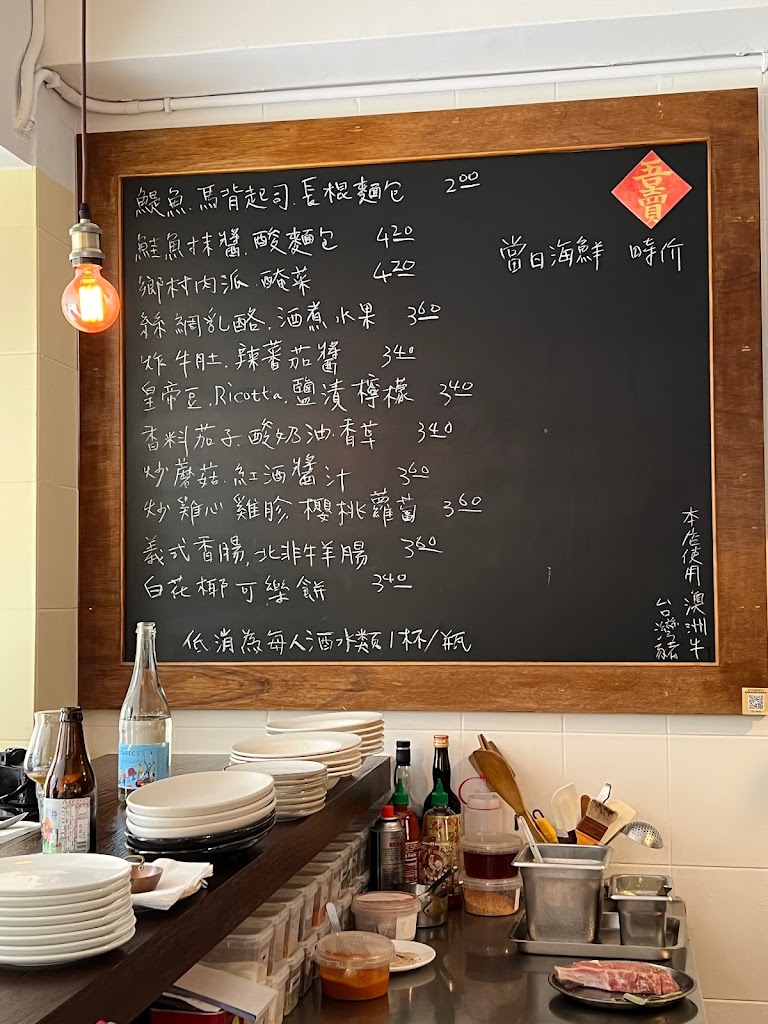 鯷魚.馬背起司.長棍麵包 2⁰⁰
鮭魚抹醬.酸麵包 4²⁰
鄉村肉派.醃菜 4²⁰
絲綢乳酪.酒煮水果 3⁶⁰
炸牛肚.辣蕃茄醬 3⁴⁰
皇帝豆.Ricotta.鹽漬檸檬 3⁴⁰
香料茄子.酸奶油.香草 3⁴⁰
炒蘑菇.紅酒醬汁 3⁶⁰
炒雞心雞胗.櫻桃蘿蔔 3⁶⁰
義式香腸,北非牛羊腸 3⁶⁰
白花椰可樂餅 3⁴⁰
低消為每人酒水類1杯/瓶
吾賣
當日海鮮 時价
本店使用澳洲牛
台灣豬